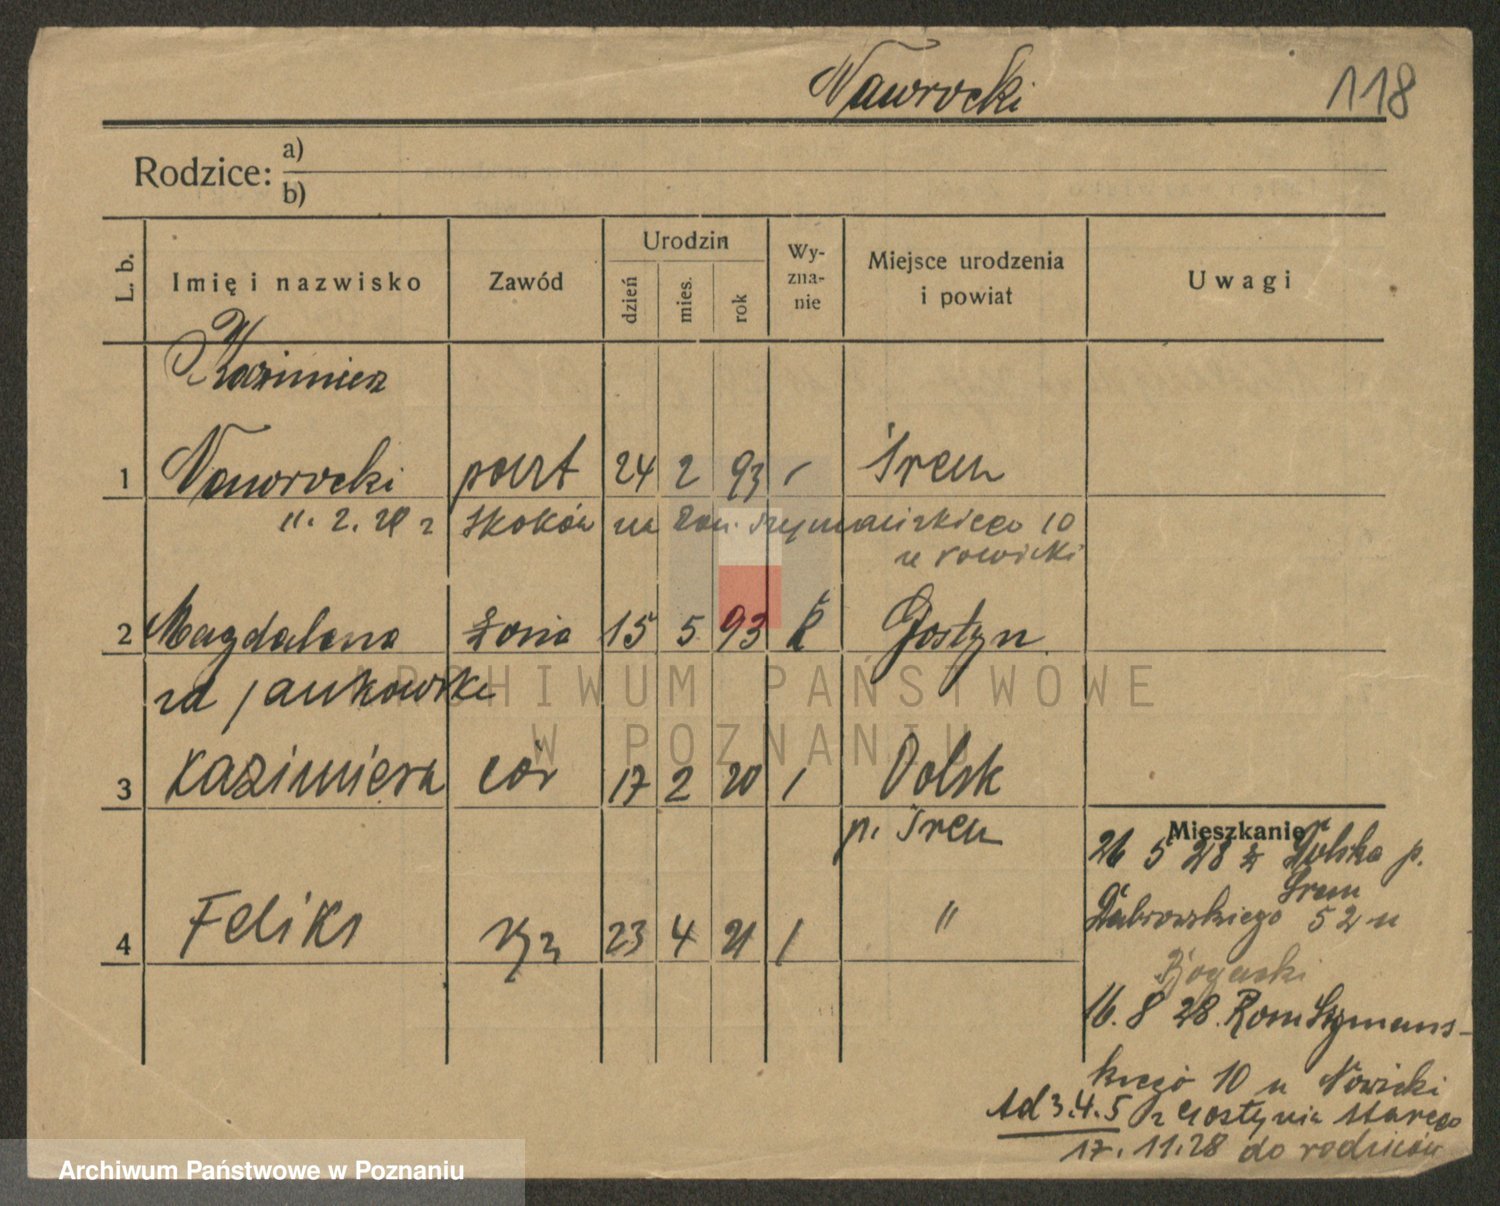 Nawrocki 118
Rodzice: a)
b)
L. b. Imię i nazwisko Zawód Urodzin dzień mies. rok Wy-zna-nie Miejsce urodzenia i powiat Uwagi
Kazimierz
1 Nawrocki 24 2 93 / Śrem
11. 2. Skoków na Rom. Szymańskiego 10
u Nowicki
2 Magdalena żona 15 5 93 k Gostyn
zd Jankowska
3 Kazimiera cór 17 2 20 / Dolsk
p. Śrem
4 Feliks 23 4 21 / "
Mieszkanie
26 5 28 z Dolska p.
Śrem
Dąbrowskiego 52 u
16. 8 28. Rom Szymańs-
kiego 10 u Nowicki
Ad 3.4.5 z Gostynia Starego
17. 11. 28 do rodziców
ARCHIWUM PAŃSTWOWE
W POZNANIU
Archiwum Państwowe w Poznaniu